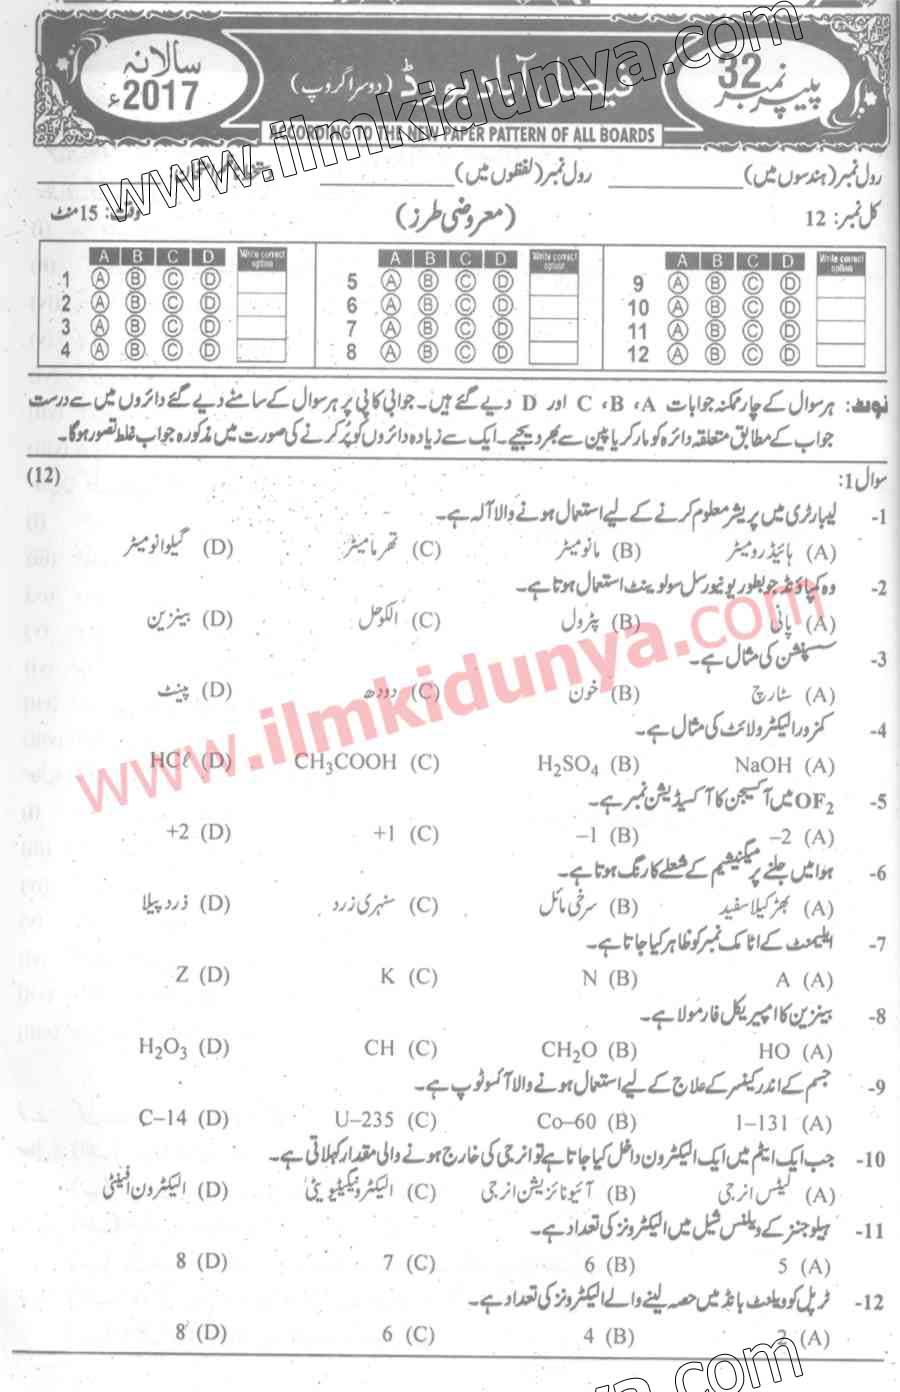 سالانہ 2017ء
فیصل آباد بورڈ (دوسرا گروپ)
پیپر نمبر 32
ACCORDING TO THE NEW PAPER PATTERN OF ALL BOARDS
www.ilmkidunya.com
رول نمبر (ہندسوں میں) __________ رول نمبر (لفظوں میں) __________
کل نمبر: 12 (معروضی طرز) وقت: 15 منٹ
A B C D Write correct option A B C D Write correct option A B C D Write correct option
1 A B C D 5 A B C D 9 A B C D
2 A B C D 6 A B C D 10 A B C D
3 A B C D 7 A B C D 11 A B C D
4 A B C D 8 A B C D 12 A B C D
نوٹ: ہر سوال کے چار ممکنہ جوابات A، B، C اور D دیے گئے ہیں۔ جوابی کاپی پر ہر سوال کے سامنے دیے گئے دائروں میں سے درست
جواب کے مطابق متعلقہ دائرہ کو مارکر یا پین سے بھر دیجیے۔ ایک سے زیادہ دائروں کو پُر کرنے کی صورت میں مذکورہ جواب غلط تصور ہوگا۔
سوال 1: (12)
1- لیبارٹری میں پریشر معلوم کرنے کے لیے استعمال ہونے والا آلہ ہے۔
(A) ہائیڈرومیٹر (B) مانومیٹر (C) تھرمامیٹر (D) گیلوانومیٹر
2- وہ کمپاؤنڈ جو بطور یونیورسل سولوینٹ استعمال ہوتا ہے۔
(A) پانی (B) پٹرول (C) الکوحل (D) بینزین
3- سسپنشن کی مثال ہے۔
(A) سٹارچ (B) خون (C) دودھ (D) پینٹ
4- کمزور الیکٹرولائٹ کی مثال ہے۔
(A) NaOH (B) H₂SO₄ (C) CH₃COOH (D) HCℓ
5- OF₂ میں آکسیجن کا آکسیڈیشن نمبر ہے۔
(A) –2 (B) –1 (C) +1 (D) +2
6- ہوا میں جلنے پر میگنیشیم کے شعلے کا رنگ ہوتا ہے۔
(A) بھڑکیلا سفید (B) سرخی مائل (C) سنہری زرد (D) زرد پیلا
7- ایلیمنٹ کے اٹامک نمبر کو ظاہر کیا جاتا ہے۔
(A) A (B) N (C) K (D) Z
8- بینزین کا امپیریکل فارمولا ہے۔
(A) HO (B) CH₂O (C) CH (D) H₂O₃
9- جسم کے اندر کینسر کے علاج کے لیے استعمال ہونے والا آئسوٹوپ ہے۔
(A) 1–131 (B) Co–60 (C) U–235 (D) C–14
10- جب ایک ایٹم میں ایک الیکٹرون داخل کیا جاتا ہے تو انرجی کی خارج ہونے والی مقدار کہلاتی ہے۔
(A) لیٹس انرجی (B) آئیونائزیشن انرجی (C) الیکٹرونیگیٹیویٹی (D) الیکٹرون افینٹی
11- ہیلوجنز کے ویلنس شیل میں الیکٹرونز کی تعداد ہے۔
(A) 5 (B) 6 (C) 7 (D) 8
12- ٹرپل کوویلنٹ بانڈ میں حصہ لینے والے الیکٹرونز کی تعداد ہے۔
(A) 2 (B) 4 (C) 6 (D) 8
www.ilmkidunya.com